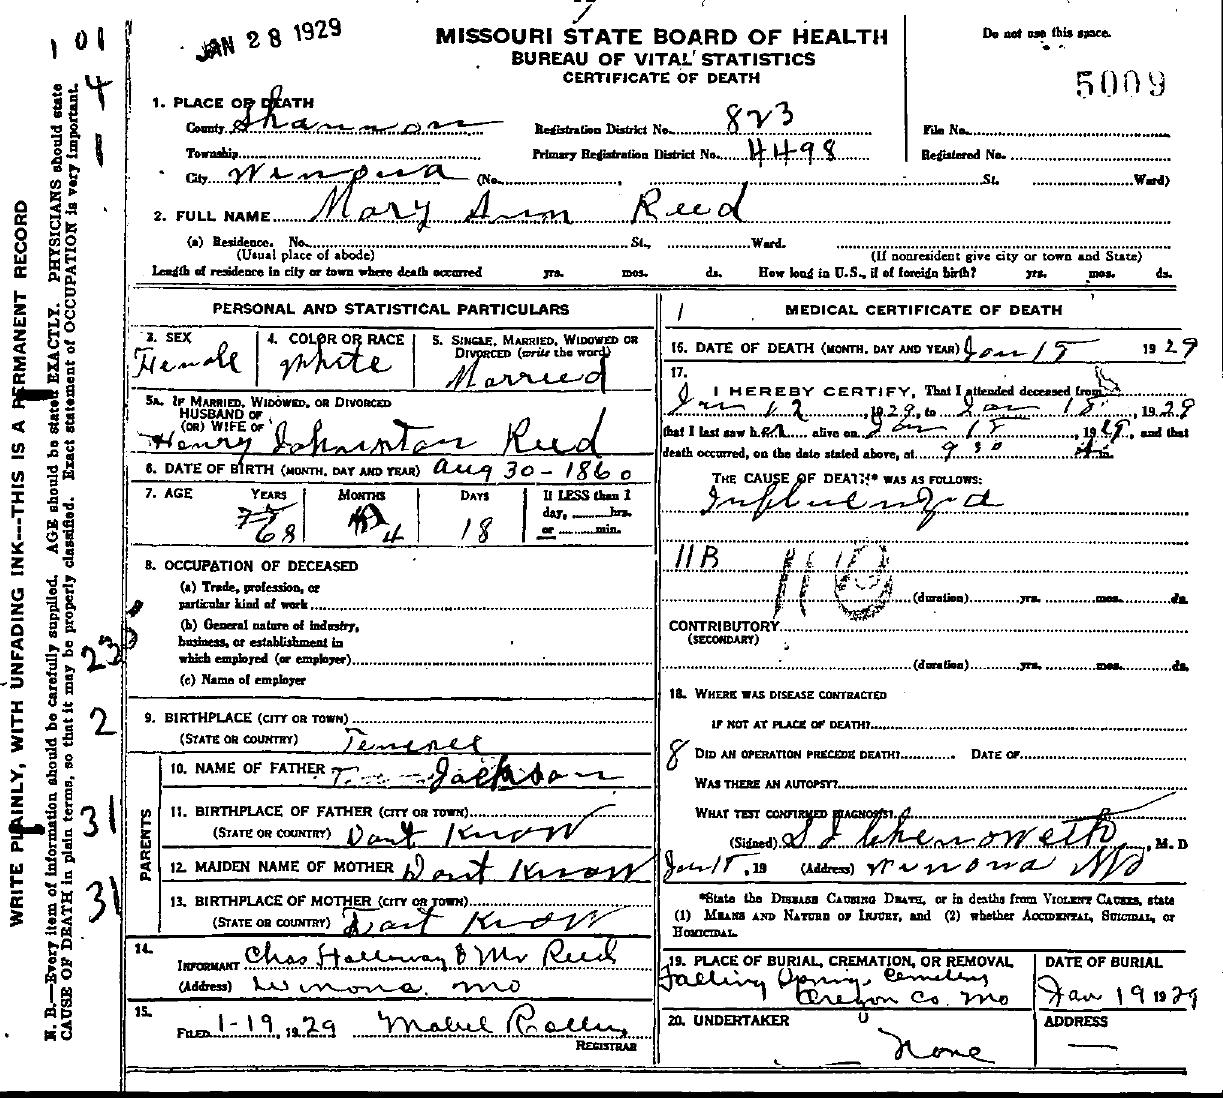 JAN 28 1929
MISSOURI STATE BOARD OF HEALTH
BUREAU OF VITAL STATISTICS
CERTIFICATE OF DEATH
Do not use this space.
5009
1. PLACE OF DEATH
County Shannon Registration District No. 823 File No.
Township Primary Registration District No. 4498 Registered No.
City Winona (No. , St. Ward)
2. FULL NAME Mary Ann Reed
(a) Residence. No. St., Ward.
(Usual place of abode) (If nonresident give city or town and State)
Length of residence in city or town where death occurred yrs. mos. ds. How long in U.S., if of foreign birth? yrs. mos. ds.
PERSONAL AND STATISTICAL PARTICULARS
3. SEX
Female
4. COLOR OR RACE
White
5. SINGLE, MARRIED, WIDOWED OR
DIVORCED (write the word)
Married
5A. IF MARRIED, WIDOWED, OR DIVORCED
HUSBAND OF
(OR) WIFE OF
Henry Johnston Reed
6. DATE OF BIRTH (MONTH, DAY AND YEAR) Aug 30-1860
7. AGE YEARS MONTHS DAYS If LESS than 1
day, hrs.
68 4 18 or min.
8. OCCUPATION OF DECEASED
(a) Trade, profession, or
particular kind of work
(b) General nature of industry,
business, or establishment in
which employed (or employer)
(c) Name of employer
9. BIRTHPLACE (CITY OR TOWN)
(STATE OR COUNTRY) Tennessee
PARENTS
10. NAME OF FATHER Jackson
11. BIRTHPLACE OF FATHER (CITY OR TOWN)
(STATE OR COUNTRY) Dont Know
12. MAIDEN NAME OF MOTHER Dont Know
13. BIRTHPLACE OF MOTHER (CITY OR TOWN)
(STATE OR COUNTRY) Dont Know
14. INFORMANT Chas Holloway & Mr Reed
(Address) Winona. Mo
15. FILED 1-19, 1929 Mabel
REGISTRAR
MEDICAL CERTIFICATE OF DEATH
16. DATE OF DEATH (MONTH, DAY AND YEAR) Jan 18 1929
17. I HEREBY CERTIFY, That I attended deceased from
Jan 12, 1929, to Jan 18, 1929
that I last saw her alive on Jan 18, 1929, and that
death occurred, on the date stated above, at 9 30 m.
THE CAUSE OF DEATH* WAS AS FOLLOWS:
Influenza
11B 110
(duration) yrs. mos. ds.
CONTRIBUTORY
(SECONDARY)
(duration) yrs. mos. ds.
18. WHERE WAS DISEASE CONTRACTED
IF NOT AT PLACE OF DEATH?
8 DID AN OPERATION PRECEDE DEATH? DATE OF
WAS THERE AN AUTOPSY?
WHAT TEST CONFIRMED DIAGNOSIS?
(Signed) Chenoweth, M. D
Jan 18, 19 (Address) Winona Mo
*State the DISEASE CAUSING DEATH, or in deaths from VIOLENT CAUSES, state
(1) MEANS AND NATURE OF INJURY, and (2) whether ACCIDENTAL, SUICIDAL, or
HOMICIDAL.
19. PLACE OF BURIAL, CREMATION, OR REMOVAL
Falling Spring Cemetery
Oregon Co. Mo
DATE OF BURIAL
Jan 19 1929
20. UNDERTAKER
None
ADDRESS
—
WRITE PLAINLY, WITH UNFADING INK---THIS IS A PERMANENT RECORD
N. B.—Every item of information should be carefully supplied. AGE should be stated EXACTLY. PHYSICIANS should state
CAUSE OF DEATH in plain terms, so that it may be properly classified. Exact statement of OCCUPATION is very important.
1 01
4
1
2
31
31